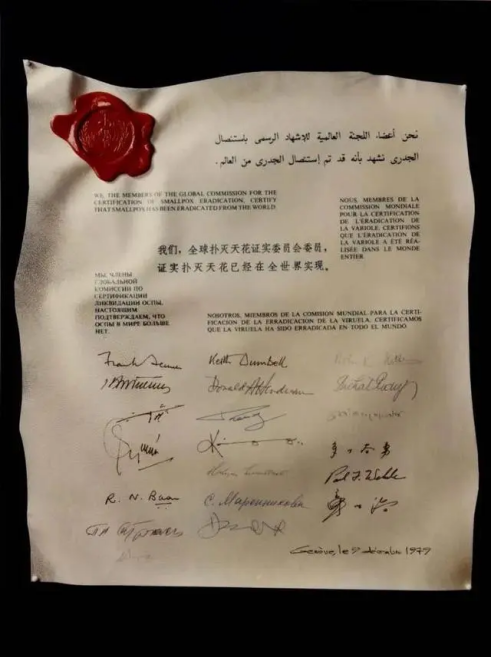 نحن أعضاء اللجنة العالمية للاشهاد الرسمى باستئصال
الجدرى نشهد بأنه قد تم إستئصال الجدرى من العالم .
WE, THE MEMBERS OF THE GLOBAL COMMISSION FOR THE
CERTIFICATION OF SMALLPOX ERADICATION, CERTIFY
THAT SMALLPOX HAS BEEN ERADICATED FROM THE WORLD
NOUS, MEMBRES DE LA
COMMISSION MONDIALE
POUR LA CERTIFICATION
DE L'ÉRADICATION DE
LA VARIOLE, CERTIFIONS
QUE L'ÉRADICATION DE
LA VARIOLE A ÉTÉ RÉA-
LISÉE DANS LE MONDE
ENTIER
我们，全球扑灭天花证实委员会委员，
证实扑灭天花已经在全世界实现。
МЫ, ЧЛЕНЫ
ГЛОБАЛЬНОЙ
КОМИССИИ ПО
СЕРТИФИКАЦИИ
ЛИКВИДАЦИИ ОСПЫ,
НАСТОЯЩИМ
ПОДТВЕРЖДАЕМ, ЧТО
ОСПЫ В МИРЕ БОЛЬШЕ
НЕТ.
NOSOTROS, MIEMBROS DE LA COMISION MUNDIAL PARA LA CERTI-
FICACION DE LA ERRADICACION DE LA VIRUELA, CERTIFICAMOS
QUE LA VIRUELA HA SIDO ERRADICADA EN TODO EL MUNDO.
Frank Fenner
Keith Dumbell
Donald A Henderson
Paul F. Wehrle
R. N. Basu
С. Маренникова
Genève, le 9 décembre 1979